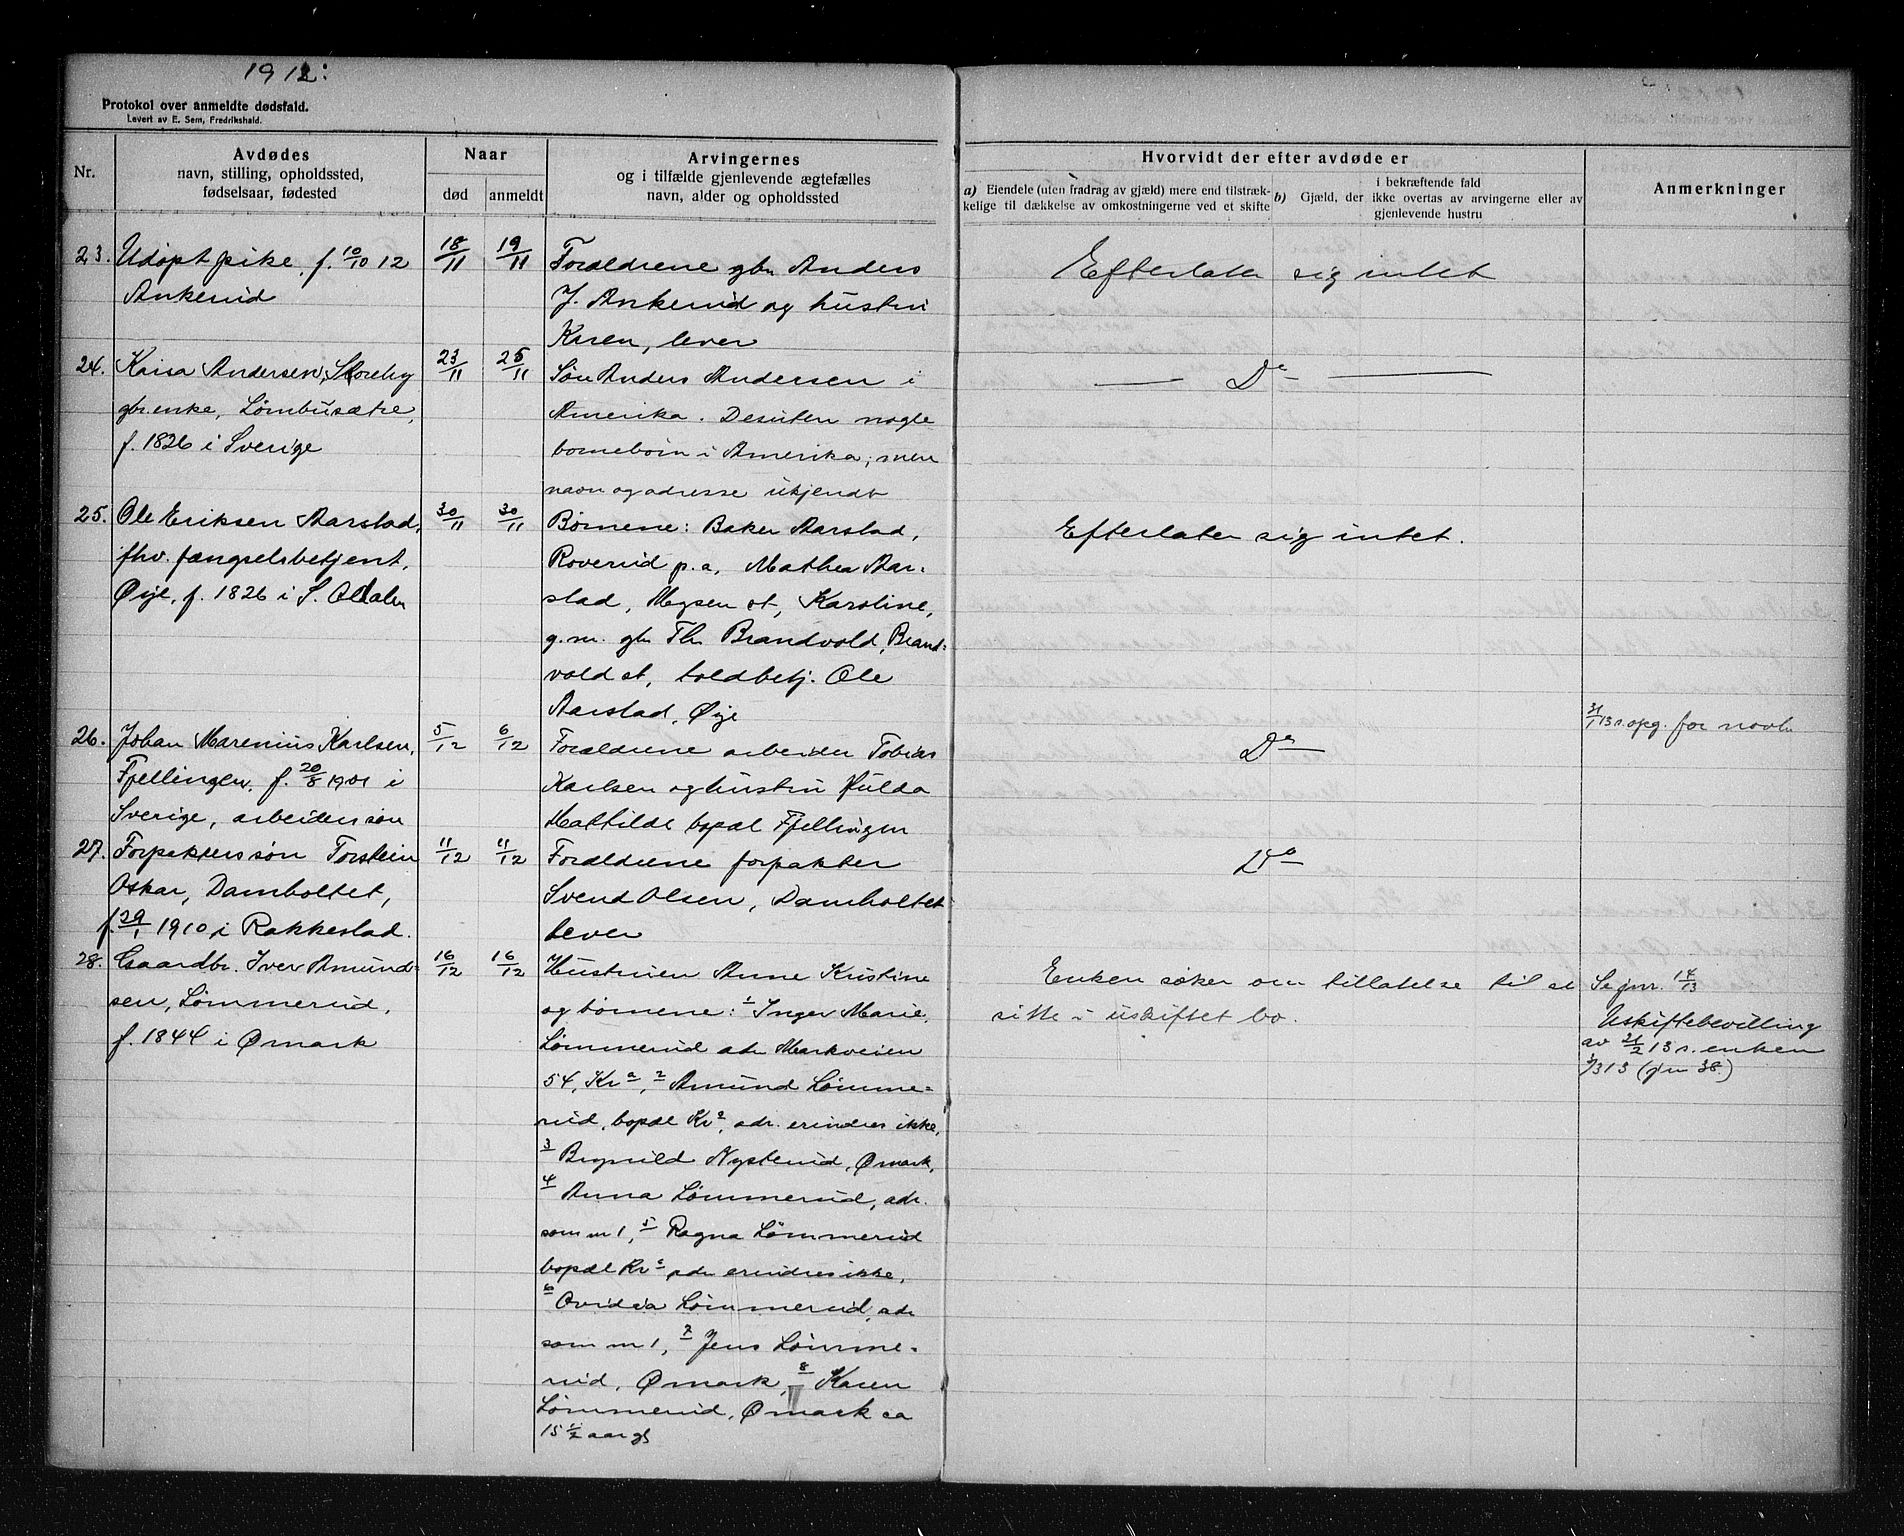 1912:
Protokol over anmeldte dødsfald.
Levert av E. Sem, Fredrikshald.
Nr.
Avdødes
navn, stilling, opholdssted,
fødselsaar, fødested
Naar
død
anmeldt
Arvingernes
og i tilfælde gjenlevende ægtefælles
navn, alder og opholdssted
Hvorvidt der efter avdøde er
a) Eiendele (uten fradrag av gjæld) mere end tilstræk-
kelige til dækkelse av omkostningerne ved et skifte
b) Gjæld, der i bekræftende fald
ikke overtas av arvingerne eller av
gjenlevende hustru
Anmerkninger
23. Udøpt pike, f. 10/10 12
Ankerud
18/11
19/11
Forældrene gbr Anders
J. Ankerud og hustru
Karen, lever
Efterlater sig intet
24. Kaisa Andersen, Storeby
gbr.enke, Lømbusætre,
f. 1826 i Sverige
23/11
25/11
Søn Anders Andersen i
Amerika. Desuten nogle
børnebørn i Amerika, men
navn og adresse ukjendt
— Do —
25. Ole Eriksen Aarstad,
fhv. fængselsbetjent,
Øije, f. 1826 i S. Odalen
30/11
30/11
Børnene: Baker Aarstad,
Roverud p.a, Mathea Aar-
stad, Mysen st, Karoline,
g.m. gbr Th Brandvold, Brand-
vold st, toldbetj. Ole
Aarstad, Øije
Efterlater sig intet.
26. Johan Marenius Karlsen,
Fjellingen, f. 20/8 1901 i
Sverige, arbeidersøn
5/12
6/12
Forældrene arbeider Tobias
Karlsen og hustru Hulda
Mathilde bopæl Fjellingen
Do
31/1 13 s. opg. for
27. Forpakters søn Torstein
Oskar, Damholtet,
f. 29/1 1910 i Rakkestad.
11/12
11/12
Forældrene forpakter
Svend Olsen, Damholtet
lever
Do
28. Gaardbr. Iver Amund-
sen, Lømmerud,
f. 1844 i Ømark
16/12
16/12
Hustruen Anne Kristine
og børnene: 1 Inger Marie
Lømmerud adr Markveien
54, Kra, 2 Amund Lømme-
rud, bopæl Kra, adr. erindres ikke,
3 Brynild Nysterud, Ømark,
4 Anna Lømmerud, adr.
som nr 1, 5 Ragna Lømmerud
bopæl Kra adr erindres ikke,
6 Ovidia Lømmerud, adr
som nr 1, 7 Jens Lømme-
rud, Ømark, 8 Karen
Lømmerud, Ømark ca
15 1/2 aar gl
Enken søker om tillatelse til at
sitte i uskiftet bo.
Se jnr. 14/13
Uskiftebevilling
av 21/2 13 s. enken
1/3 13 (jnr 38.)